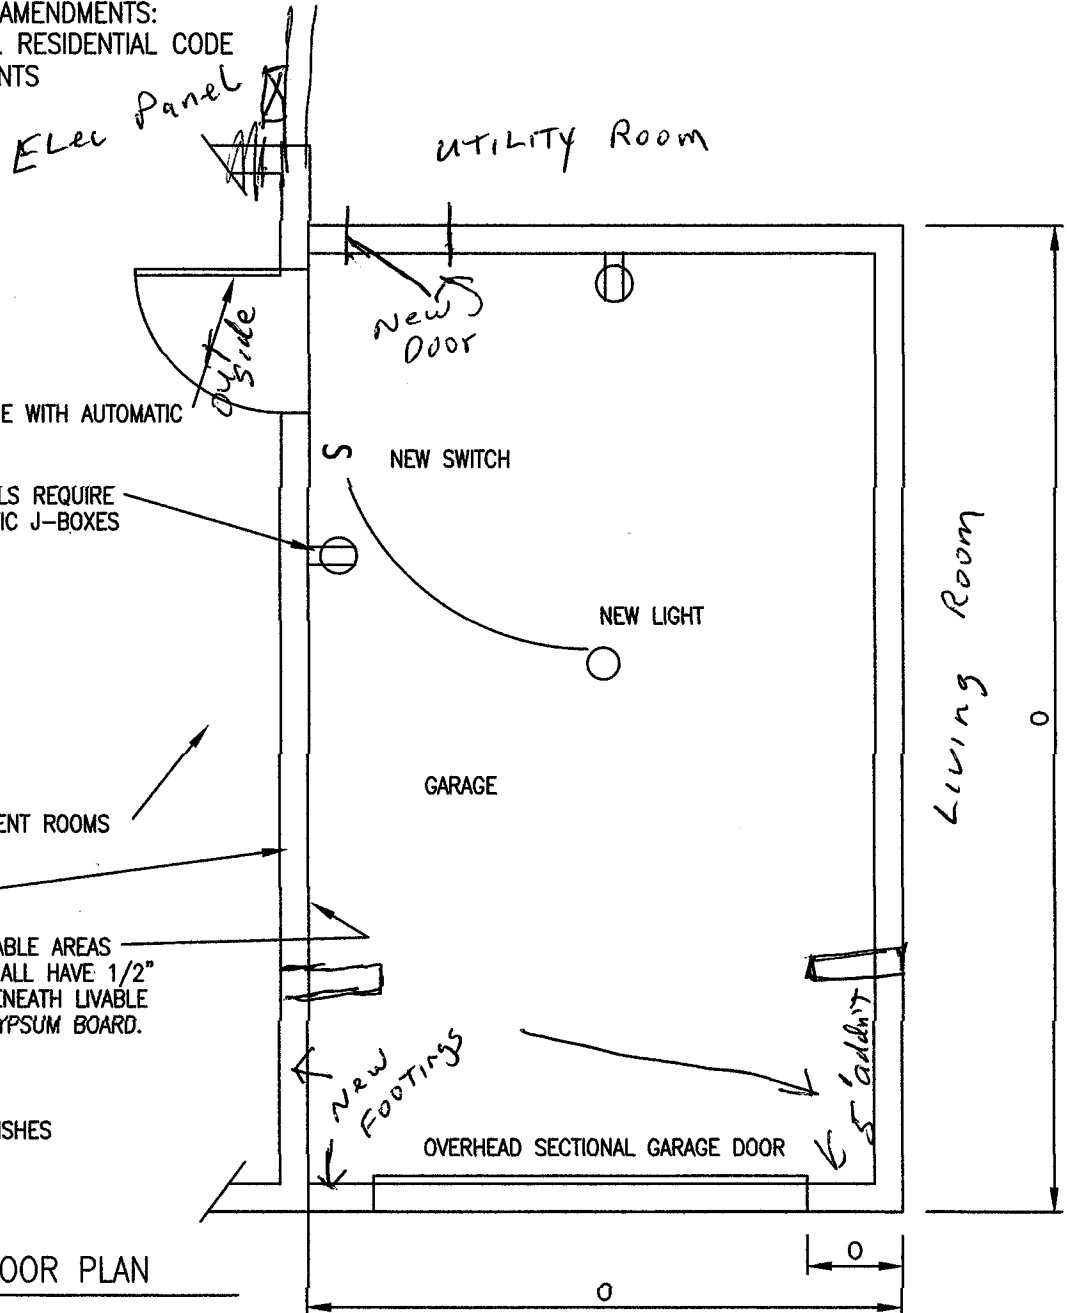 AMENDMENTS:
RESIDENTIAL CODE
NTS
ELec Panel
UTILITY Room
out
side
New
Door
E WITH AUTOMATIC
S
NEW SWITCH
LS REQUIRE
IC J-BOXES
NEW LIGHT
Living Room
O
GARAGE
ENT ROOMS
ABLE AREAS
ALL HAVE 1/2"
ENEATH LIVABLE
YPSUM BOARD.
New
FOOTings
5' addn't
SHES
OVERHEAD SECTIONAL GARAGE DOOR
OOR PLAN
O
O